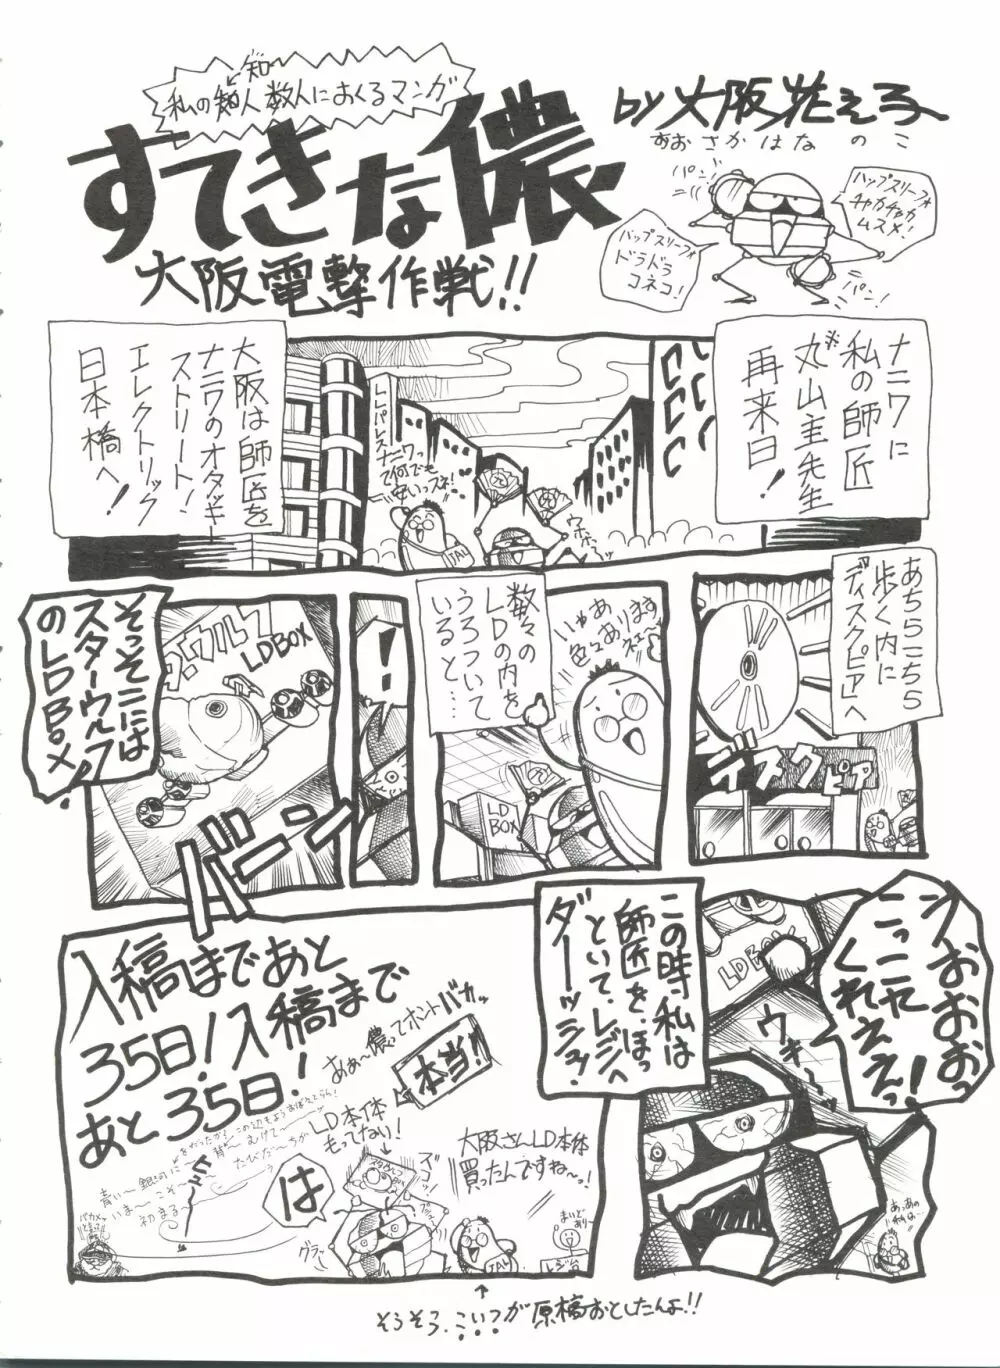 知
私の知人数人におくるマンガ
すてきな儂
大阪電撃作戦!!
by大阪花え子
おおさかはなのこ
パン!
ハップスリーフォ
チャカチャカ
ムスメ!
バップスリーフォ
ドラドラ
コネコ!
パン!
ナニワに
私の師匠
丸山主先生
再来日!
LLパレスナニワ
って何でも
安いっスネ!
ウホホーッ
JAL
大阪は師匠を
ナニワのオタッキー
ストリート!
エレクトリック
日本橋へ!
あちらこちら
歩く内に
ディスクピアへ
ディスクピア
いゃあ
色々あります
ネェ
数々の
LDの内を
うろついて
いると…
LD
BOX
!
そっそこには
スターウルフ
のLDBOX!
スターウルフ
LDBOX
バーン
シおおおっ
こっこれ
くれええっ!
LDBOX
ウキーッ
あっあの
私は…
この時、私は
師匠をほっ
といて、レジへ
ダーッシュ!
入稿まであと
35日!入稿まで
あと35日!
あぁ〜儂ってホントバカッ
本当!
LD本体
もってない!
大阪さんLD本体
買ったんですね〜っ!
スイッ
コッ
グラッ
JAL
まいど
あり〜
レジ台
は
ヒュー
青い〜銀河に
いま〜こそ〜
初まる〜
背〜むけて〜
たびだ〜ちが
↑
そろそろ、こいつが原稿おとしたんよ!!